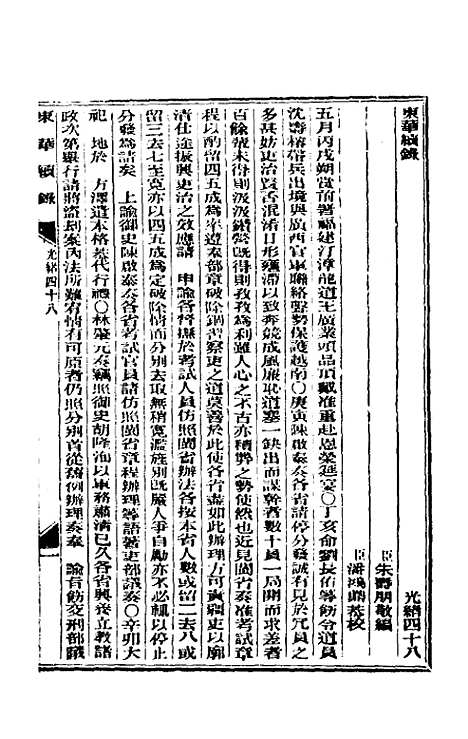 東華續錄
光緒四十八
臣朱壽朋敬編
臣潘鴻鼎恭校
五月丙戌朔賞前署福建汀漳龍道王廣業頭品頂戴准重赴恩榮筵宴○丁亥命劉長佑等飭令道員
沈壽榕帶兵出境與廣西官軍聯絡聲勢保護越南○庚寅陳啟泰奏各省請停分發誠有見於冗員之
多甚妨吏治賢否混淆日形壅滯以致奔競成風廉恥道塞一缺出而謀幹者數十員一局開而求差者
百餘輩未得則汲汲鑽營既得則孜孜為利雖人心之不古亦積弊之勢使然也近見閩省奏准考試章
程以酌留四五成為率遵奉部章破除錮習察吏之道莫善於此使各省盡如此辦理方可資疆吏以廓
清仕途振興吏治之效應請 申諭各督撫於考試人員仿照閩省辦法各按本省人數或留二去八或
留三去七至寬亦以四五成為定破除情面分別去取無稍寬濫旌別既嚴人爭自勵亦不必輒以停止
分發為請奏 上諭御史陳啟泰奏各省考試官員請仿照閩省章程辦理等語著吏部議奏○辛卯大
祀 地於 方澤遣本格恭代行禮○林肇元奏竊照御史胡隆洵以軍務肅清已久各省興養立教諸
政次第舉行請將盜劫案內法所難宥情有可原者仍照分別首從舊例辦理奏奉 諭旨飭交刑部議
東華續錄 光緒四十八